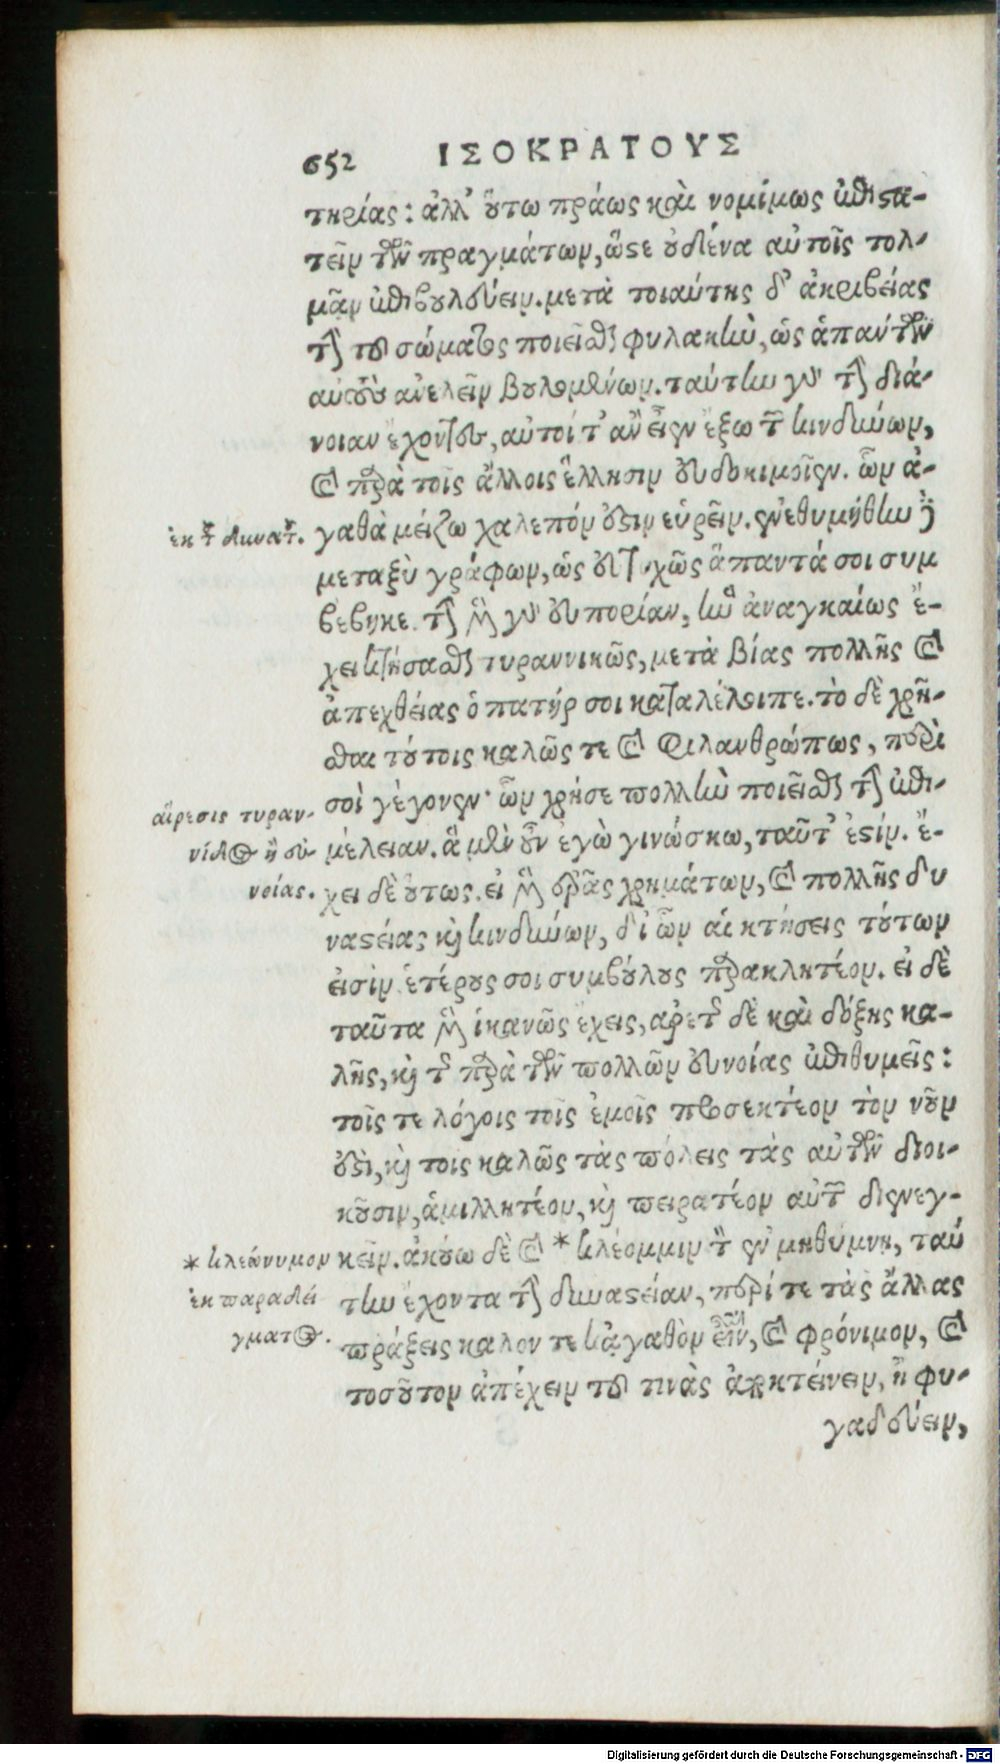 652 ΙΣΟΚΡΑΤΟΥΣ
τηρίας: ἀλλ' οὕτω πράως καὶ νομίμως ἐπιστα-
τεῖν τῶν πραγμάτων, ὥστε οὐδένα αὐτοῖς τολ-
μᾷν ἐπιβουλεύειν. μετὰ τοιαύτης δ' ἀκριβείας
τὴν τοῦ σώματος ποιεῖσθαι φυλακὴν, ὡς ἁπάντων
αὐτοὺς ἀνελεῖν βουλομένων. ταύτην γὰρ τὴν διά-
νοιαν ἔχοντες, αὐτοί τ' ἂν εἶεν ἔξω τῶν κινδύνων,
καὶ παρὰ τοῖς ἄλλοις ἕλλησιν εὐδοκιμοῖεν. ὧν ἀ-
ἐκ τῶν δυνατῶν.
γαθὰ μείζω χαλεπόν ἐστιν εὑρεῖν. ἐνεθυμήθην δὲ
μεταξὺ γράφων, ὡς εὐτυχῶς ἅπαντά σοι συμ
βέβηκε. τὴν μὲν γὰρ εὐπορίαν, ἣν ἀναγκαίως ἔ-
χει κτήσασθαι τυραννικῶς, μετὰ βίας πολλῆς καὶ
ἀπεχθείας ὁ πατήρ σοι καταλέλοιπε. τὸ δὲ χρῆ-
σθαι τούτοις καλῶς τε καὶ φιλανθρώπως, περὶ
αἵρεσις τυραν-
σοὶ γέγονεν· ὧν χρή σε πολλὴν ποιεῖσθαι τὴν ἐπι-
νίδος ἢ εὐ-
μέλειαν. ἃ μὲν οὖν ἐγὼ γινώσκω, ταῦτ' ἐστίν. ἔ-
νοίας.
χει δὲ οὕτως. εἰ μὲν ἐρᾷς χρημάτων, καὶ πολλῆς δυ
ναστείας καὶ κινδύνων, δι' ὧν αἱ κτήσεις τούτων
εἰσὶν ἑτέρους σοι συμβούλους παρακλητέον. εἰ δὲ
ταῦτα μὲν ἱκανῶς ἔχεις, ἀρετῆς δὲ καὶ δόξης κα-
λῆς, καὶ τῆς παρὰ τῶν πολλῶν εὐνοίας ἐπιθυμεῖς:
τοῖς τε λόγοις τοῖς ἐμοῖς προσεκτέον τὸν νοῦν
ἐστὶ, καὶ τοις καλῶς τὰς πόλεις τὰς αὐτῶν διοι-
κοῦσιν, ἁμιλλητέον, καὶ πειρατέον αὐτῶν διενεγ-
* κλεώνυμον
κεῖν. ἀκούω δὲ καὶ * κλέομμιν τὸν ἐν μηθύμνῃ, ταύ
ἐκ παραδεί
την ἔχοντα τὴν δυναστείαν, περί τε τὰς ἄλλας
γματος.
πράξεις καλον τε κἀγαθὸν εἶναι, καὶ φρόνιμον, καὶ
τοσοῦτον ἀπέχειν τοῦ τινὰς ἀποκτείνειν, ἢ φυ-
γαδεύειν,
Digitalisierung gefördert durch die Deutsche Forschungsgemeinschaft - DFG